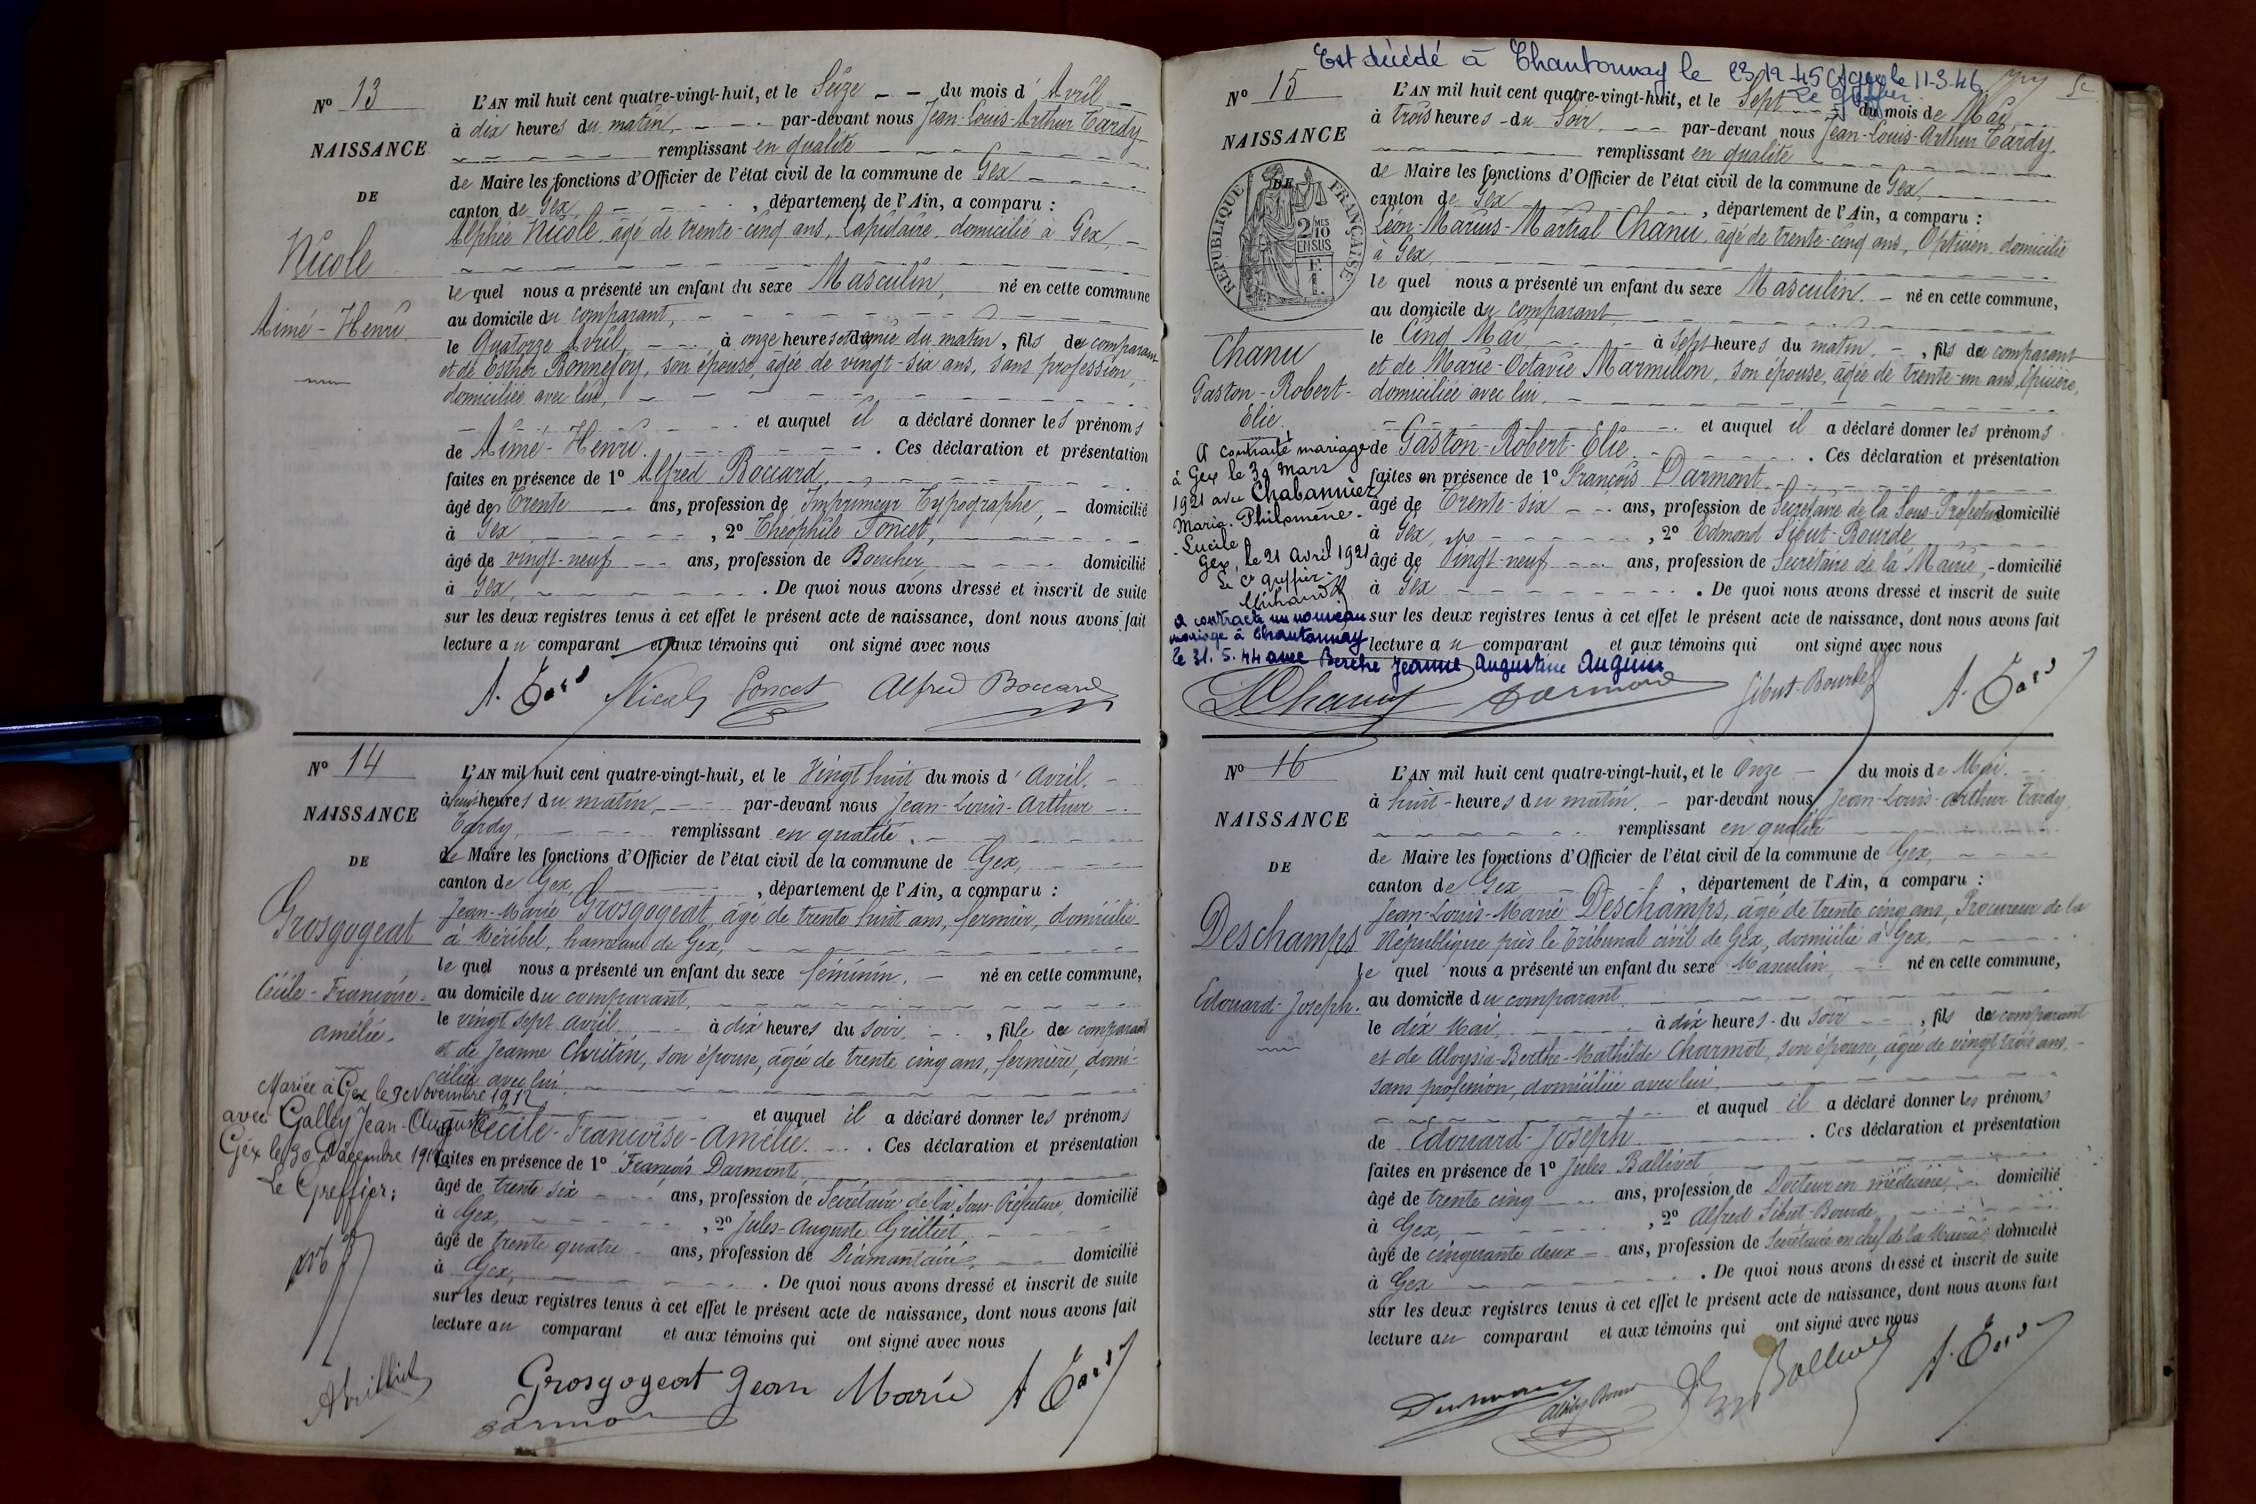 Nº 13
NAISSANCE
DE
Nicole
Aimé-Henri
L'AN mil huit cent quatre-vingt-huit, et le Seize du mois d'Avril
à dix heures du matin, par-devant nous Jean-Louis-Arthur Tardy
remplissant en qualité
de Maire les fonctions d'Officier de l'état civil de la commune de Gex
canton de Gex, département de l'Ain, a comparu :
Alphée Nicole, âgé de trente-cinq ans, Lapidaire, domicilié à Gex,
lequel nous a présenté un enfant du sexe Masculin, né en cette commune
au domicile du comparant,
le Quatorze Avril, à onze heures et demie du matin, fils du comparant
et de Esther Bonnefoy, son épouse, âgée de vingt-six ans, sans profession,
domiciliée avec lui,
et auquel il a déclaré donner les prénoms
de Aimé-Henri. Ces déclaration et présentation
faites en présence de 1º Alfred Boccard,
âgé de Trente ans, profession de Imprimeur Typographe, domicilié
à Gex, 2º Théophile Poncet,
âgé de vingt-neuf ans, profession de Boucher, domicilié
à Gex, . De quoi nous avons dressé et inscrit de suite
sur les deux registres tenus à cet effet le présent acte de naissance, dont nous avons fait
lecture au comparant et aux témoins qui ont signé avec nous
Poncet Alfred Boccard
Nº 14
NAISSANCE
DE
Grosgogeat
Cécile-Françoise-
Amélie.
Mariée à Gex le 9 Novembre 1912
avec Galley Jean-Auguste
Gex le 30 Décembre 1912
Le Greffier:
L'AN mil huit cent quatre-vingt-huit, et le Vingt huit du mois d'Avril.
à heures du matin, par-devant nous Jean-Louis-Arthur
Tardy, remplissant en qualité
de Maire les fonctions d'Officier de l'état civil de la commune de Gex,
canton de Gex, département de l'Ain, a comparu :
Jean-Marie Grosgogeat, âgé de trente huit ans, fermier, domicilié
à Méribel, hameau de Gex,
lequel nous a présenté un enfant du sexe féminin, né en cette commune,
au domicile du comparant,
le vingt sept avril, à dix heures du soir, fille du comparant
et de Jeanne Chritin, son épouse, âgée de trente cinq ans, fermière, domi-
ciliée avec lui
et auquel il a déclaré donner les prénoms
de Cécile-Françoise-Amélie. Ces déclaration et présentation
faites en présence de 1º François Darmont,
âgé de trente six ans, profession de Secrétaire de la Sous-Préfecture, domicilié
à Gex, 2º Jules-Auguste Grilliet,
âgé de trente quatre ans, profession de Diamantaire, domicilié
à Gex, . De quoi nous avons dressé et inscrit de suite
sur les deux registres tenus à cet effet le présent acte de naissance, dont nous avons fait
lecture au comparant et aux témoins qui ont signé avec nous
Grosgogeat Jean Marie
Est décédé à Chantonnay le 23-12-45 Gex le 11-3-46
Le Greffier
Nº 15
NAISSANCE
DE
RÉPUBLIQUE FRANÇAISE
2/10 MES
EN SUS
Chanu
Gaston-Robert-
Elie.
A contracté mariage
à Gex le 30 Mars
1921 avec Chabannier
Maria-Philomène-
Lucile
Gex, le 21 Avril 1921
Le Cs greffier
A contracté un nouveau
mariage à Chantonnay
le 31.5.44 avec Berthe Jeanne Augustine Auguin
L'AN mil huit cent quatre-vingt-huit, et le Sept du mois de Mai
à trois heures du soir, par-devant nous Jean-Louis-Arthur Tardy,
remplissant en qualité
de Maire les fonctions d'Officier de l'état civil de la commune de Gex,
canton de Gex, département de l'Ain, a comparu :
Léon-Marius-Martial Chanu, âgé de trente-cinq ans, Opticien, domicilié
à Gex,
lequel nous a présenté un enfant du sexe Masculin, né en cette commune,
au domicile du comparant,
le Cinq Mai, à sept heures du matin, fils du comparant
et de Marie-Octavie Marmillon, son épouse, âgée de trente-un ans, Epicière,
domiciliée avec lui.
et auquel il a déclaré donner les prénoms
de Gaston-Robert-Elie. Ces déclaration et présentation
faites en présence de 1º François Darmont
âgé de Trente-six ans, profession de Secrétaire de la Sous-Préfecture domicilié
à Gex, 2º Edmond Sibut-Bourde,
âgé de Vingt-neuf ans, profession de Secrétaire de la Mairie, domicilié
à Gex . De quoi nous avons dressé et inscrit de suite
sur les deux registres tenus à cet effet le présent acte de naissance, dont nous avons fait
lecture au comparant et aux témoins qui ont signé avec nous
LChanu Darmont Sibut-Bourde
Nº 16
NAISSANCE
DE
Deschamps
Edouard-Joseph.
L'AN mil huit cent quatre-vingt-huit, et le Onze du mois de Mai.
à huit heures du matin, par-devant nous, Jean-Louis-Arthur Tardy,
remplissant en qualité
de Maire les fonctions d'Officier de l'état civil de la commune de Gex,
canton de Gex, département de l'Ain, a comparu :
Jean-Louis-Marie Deschamps, âgé de trente cinq ans, Procureur de la
République près le Tribunal civil de Gex, domicilié à Gex,
lequel nous a présenté un enfant du sexe Masculin né en cette commune,
au domicile du comparant,
le dix Mai, à dix heures du soir, fils du comparant
et de Aloysia-Berthe-Mathilde Charmot, son épouse, âgée de vingt trois ans,
sans profession, domiciliée avec lui,
et auquel il a déclaré donner les prénoms
de Edouard-Joseph. Ces déclaration et présentation
faites en présence de 1º Jules Ballivet
âgé de trente cinq ans, profession de Docteur en médecine, domicilié
à Gex, 2º Alfred Sibut-Bourde,
âgé de cinquante deux ans, profession de Secrétaire en chef de la Mairie, domicilié
à Gex . De quoi nous avons dressé et inscrit de suite
sur les deux registres tenus à cet effet le présent acte de naissance, dont nous avons fait
lecture au comparant et aux témoins qui ont signé avec nous